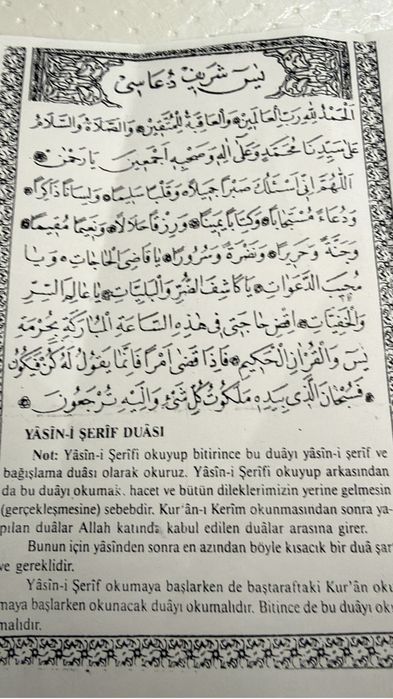 يس شريف دعاسى
اَلْحَمْدُ لِلّٰهِ رَبِّ الْعَالَمِينَ وَالْعَاقِبَةُ لِلْمُتَّقِينَ وَالصَّلَاةُ وَالسَّلَامُ
عَلٰى سَيِّدِنَا مُحَمَّدٍ وَعَلٰى اٰلِهِ وَصَحْبِهِ اَجْمَعِينَ يَا رَحْمٰنُ
اَللّٰهُمَّ اِنِّى اَسْئَلُكَ صَبْرًا جَمِيلًا وَقَلْبًا سَلِيمًا وَلِسَانًا ذَاكِرًا
وَدُعَاءً مُسْتَجَابًا وَكِتَابًا يَمِينًا وَرِزْقًا حَلَالًا وَنَعِيمًا مُقِيمًا
وَجَنَّةً وَحَرِيرًا وَنَضْرَةً وَسُرُورًا يَا قَاضِىَ الْحَاجَاتِ وَيَا
مُجِيبَ الدَّعَوَاتِ يَا كَاشِفَ الضُّرِّ وَالْبَلِيَّاتِ يَا عَالِمَ السِّرِّ
وَالْخَفِيَّاتِ اِقْضِ حَاجَتِى فِى هٰذِهِ السَّاعَةِ الْمُبَارَكَةِ بِحُرْمَةِ
يٰسٓ وَالْقُرْاٰنِ الْحَكِيمِ فَاِذَا قَضٰى اَمْرًا فَاِنَّمَا يَقُولُ لَهُ كُنْ فَيَكُونُ
فَسُبْحَانَ الَّذِى بِيَدِهِ مَلَكُوتُ كُلِّ شَىْءٍ وَاِلَيْهِ تُرْجَعُونَ
YÂSİN-İ ŞERÎF DUÂSI
Not: Yâsîn-i Şerîfi okuyup bitirince bu duâyı yâsîn-i şerîf ve
bağışlama duâsı olarak okuruz. Yâsîn-i Şerîfi okuyup arkasından
da bu duâyı okumak, hacet ve bütün dileklerimizin yerine gelmesine
(gerçekleşmesine) sebebdir. Kur'ân-ı Kerîm okunmasından sonra ya-
pılan duâlar Allah katında kabul edilen duâlar arasına girer.
Bunun için yâsînden sonra en azından böyle kısacık bir duâ şart
ve gereklidir.
Yâsîn-i Şerîf okumaya başlarken de baştaraftaki Kur'ân oku-
maya başlarken okunacak duâyı okumalıdır. Bitince de bu duâyı oku-
malıdır.